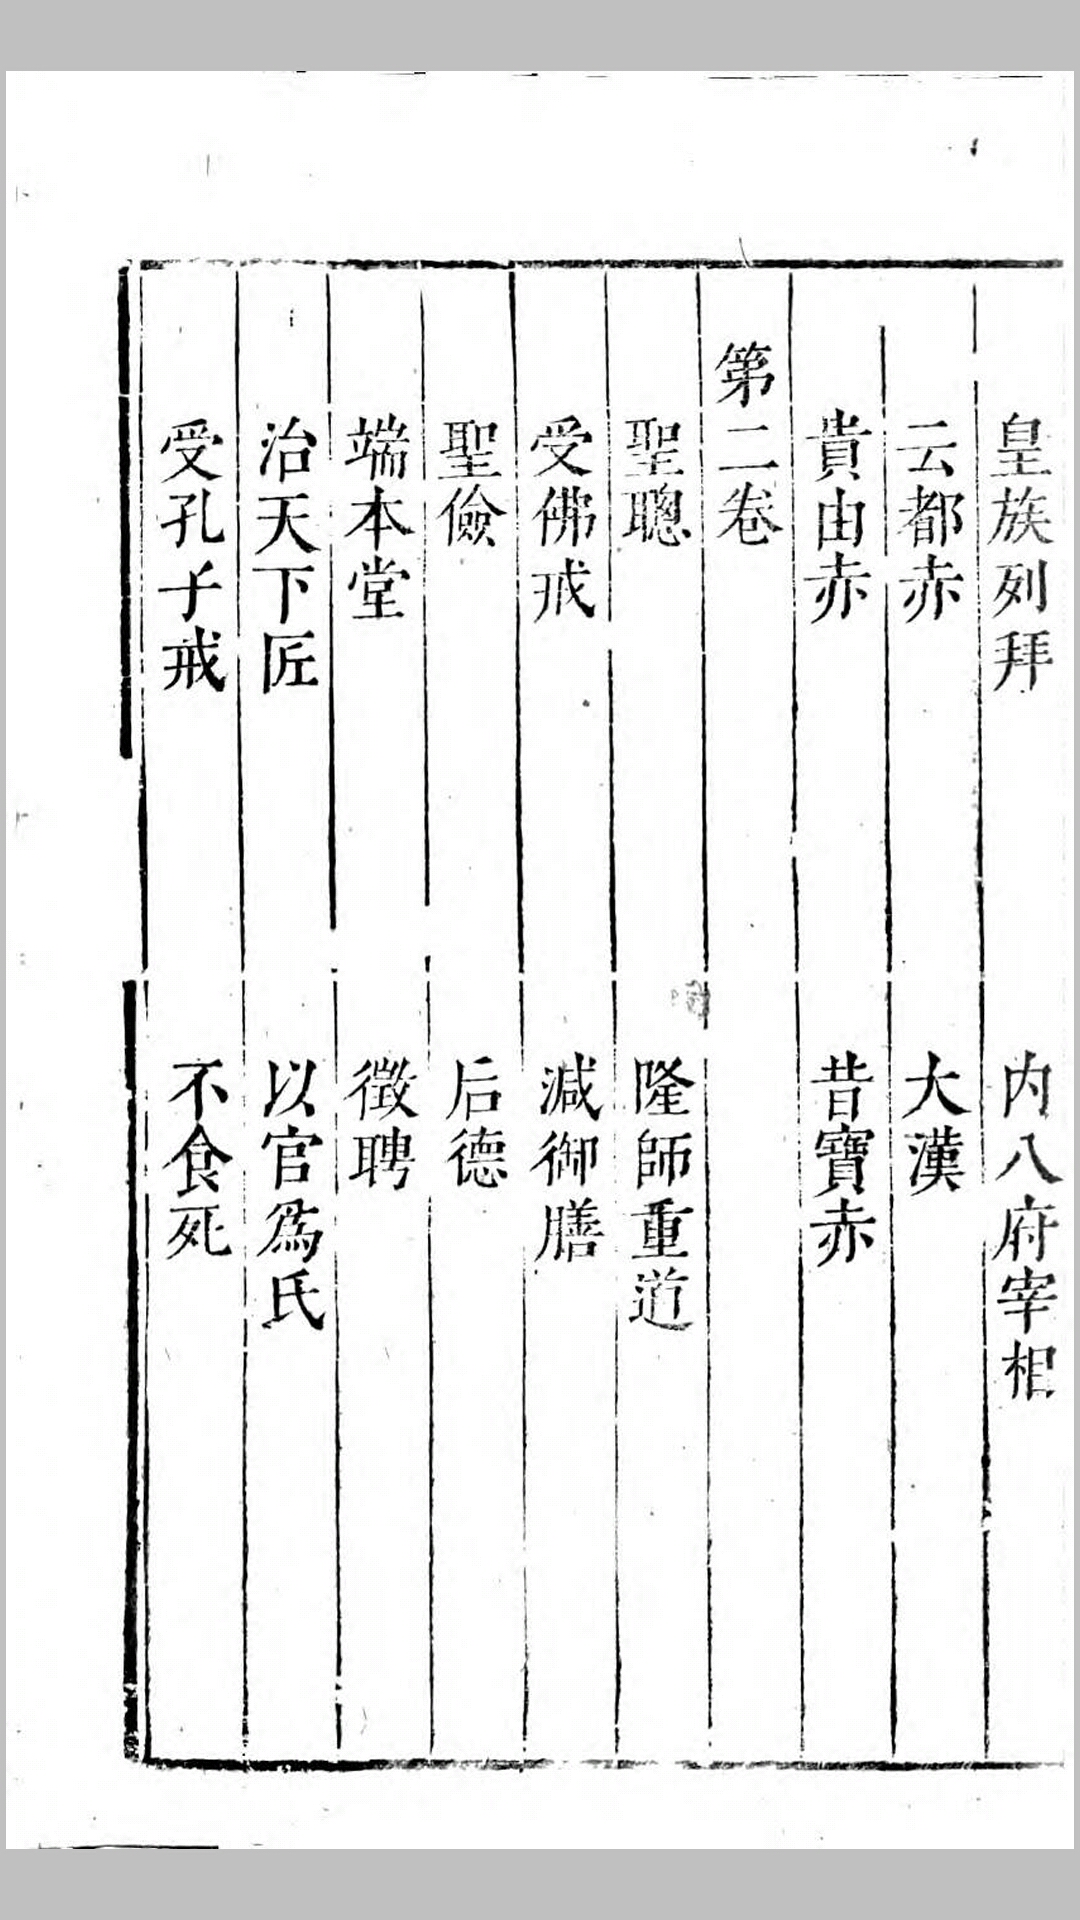 皇族列拜　內八府宰相
云都赤　大漢
貴由赤　昔寶赤
第二卷
聖聰　隆師重道
受佛戒　減御膳
聖儉　后德
端本堂　徵聘
治天下匠　以官爲氏
受孔子戒　不食死